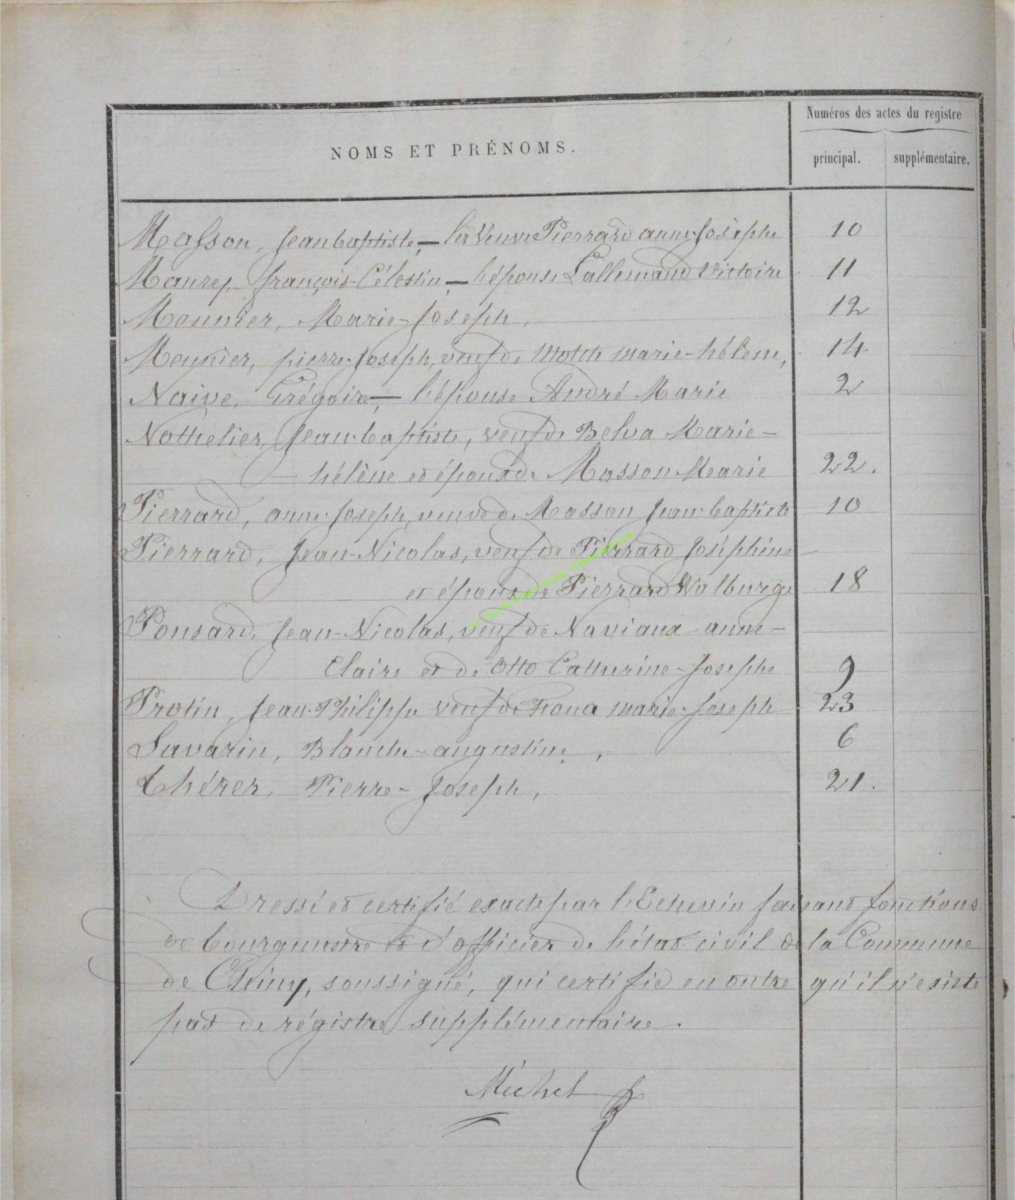 Numéros des actes du registre
NOMS ET PRÉNOMS.
principal. supplémentaire.
Masson, Jean baptiste, — la Veuve Pierrard anne-Josèphe 10
Maurey, françois-Célestin, — l'épouse Lallemand Victoire 11
Mounier, Marie-Joseph, 12
Meunier, pierre-Joseph, veuf de Motch marie-hélène, 14
Naive, Grégoire, — l'épouse André Marie 2
Nothelier, Jean-baptiste, veuf de Belva Marie-
hélène et époux de Masson Marie 22.
Pierrard, anne-Joseph, veuve de Masson Jean-baptiste 10
Pierrard, Jean-Nicolas, veuf de Pierrard Joséphine
et époux de Pierrard Walburge 18
Ponsard, Jean-Nicolas, veuf de Naviaux anne-
Claire et de Otto Catherine-Josephe 9
Protin, Jean-Philippe veuf de marie-Joseph 23
Savarin, Blanche-augustine, 6
Thérer, Pierre-Joseph, 21.
Dressé et certifié exact par l'Echevin faisant fonctions
de bourgmestre et d'officier de l'état civil de la Commune
de soussigné, qui certifie en outre qu'il n'existe
pas de régistre supplémentaire.
Michel